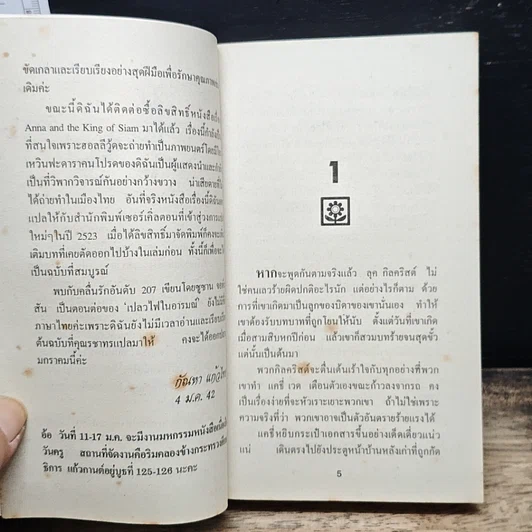 ขัดเกลาและเรียบเรียงอย่างสุดฝีมือเพื่อรักษาคุณภาพ
เดิมค่ะ
ขณะนี้ดิฉันได้ติดต่อซื้อลิขสิทธิ์หนังสือ
Anna and the King of Siam มาได้แล้ว เรื่องนี้กำลัง
ที่สนใจเพราะฮอลลีวู้ดจะถ่ายทำเป็นภาพยนตร์โดย
เหวินฟะดาราคนโปรดของดิฉันเป็นผู้แสดงนำและ
เป็นที่วิพากวิจารณ์กันอย่างกว้างขวาง น่าเสียดายที่
ได้ในเมืองไทย อันที่จริงหนังสือเรื่องนี้ดิฉัน
แปลให้กับสำนักพิมพ์เซอร์เคิ่ลตอนที่เข้าสู่วงการ
ใหม่ๆในปี 2523 เมื่อได้ลิขสิทธิ์มาจัดพิมพ์ก็คงจะ
เดิมบทที่เคยตัดออกไปบ้างในเล่มก่อน ทั้งนี้ก็เพื่อจะ
เป็นฉบับที่สมบูรณ์
พบกับเคลิ้มรักอันดับ 207 เขียนโดยซูซาน
สัน เป็นตอนต่อของ 'เปลวไฟในอารมณ์' ยังไม่
ภาษาไทยค่ะเพราะดิฉันยังไม่มีเวลาอ่านและเรียบ
ต้นฉบับที่คุณราชาทรแปลมาให้ คงจะได้ออก
มกราคมนี้ค่ะ
กัณหา แก้วไทย
4 ม.ค. 42
อ้อ วันที่ 11-17 ม.ค. จะมีงานมหกรรมหนังสือ
วันครู สถานที่จัดงานคือริมคลองข้างกระทรวงศึกษา
ธิการ แก้วกานต์อยู่บูธที่ 125-126 นะคะ
1
หากจะพูดกันตามจริงแล้ว ลุค กิลคริสต์ ไม่
ใช่คนเลวร้ายผิดปกติอะไรนัก แต่อย่างไรก็ตาม ด้วย
การที่เขาเกิดมาเป็นลูกของบิดาของเขานั่นเอง ทำให้
เขาต้องรับบทบาทที่ถูกโยนให้นับ ตั้งแต่วันที่เขาเกิด
เมื่อสามสิบหกปีก่อน แล้วเขาก็สวมบทร้ายจนสุดขั้ว
แต่นั้นเป็นต้นมา
พวกกิลคริสต์จะตื่นเต้นเร้าใจกับทุกอย่างที่พวก
เขาทำ แกซี่ เวด เตือนตัวเองขณะก้าวลงจากรถ คง
เป็นเรื่องง่ายที่จะหัวเราะเยาะพวกเขา ถ้าไม่ใช่เพราะ
ความจริงที่ว่า พวกเขาอาจเป็นตัวอันตรายร้ายแรงได้
แคซี่หยิบกระเป๋าเอกสารขึ้นอย่างเด็ดเดี่ยวแน่ว
แน่ เดินตรงไปยังประตูหน้าบ้านหลังเก่าที่ถูกกัด
5